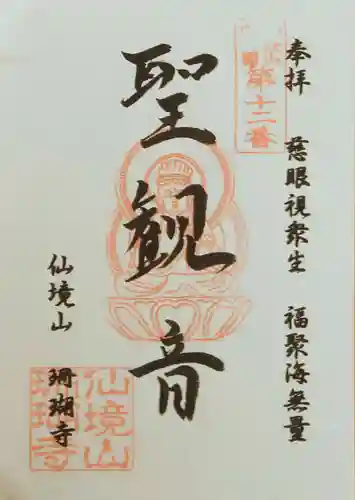 奉拝
慈眼視衆生
福聚海無量
第十二番
聖観音
仙境山
珊瑚寺
仙境山
珊瑚寺